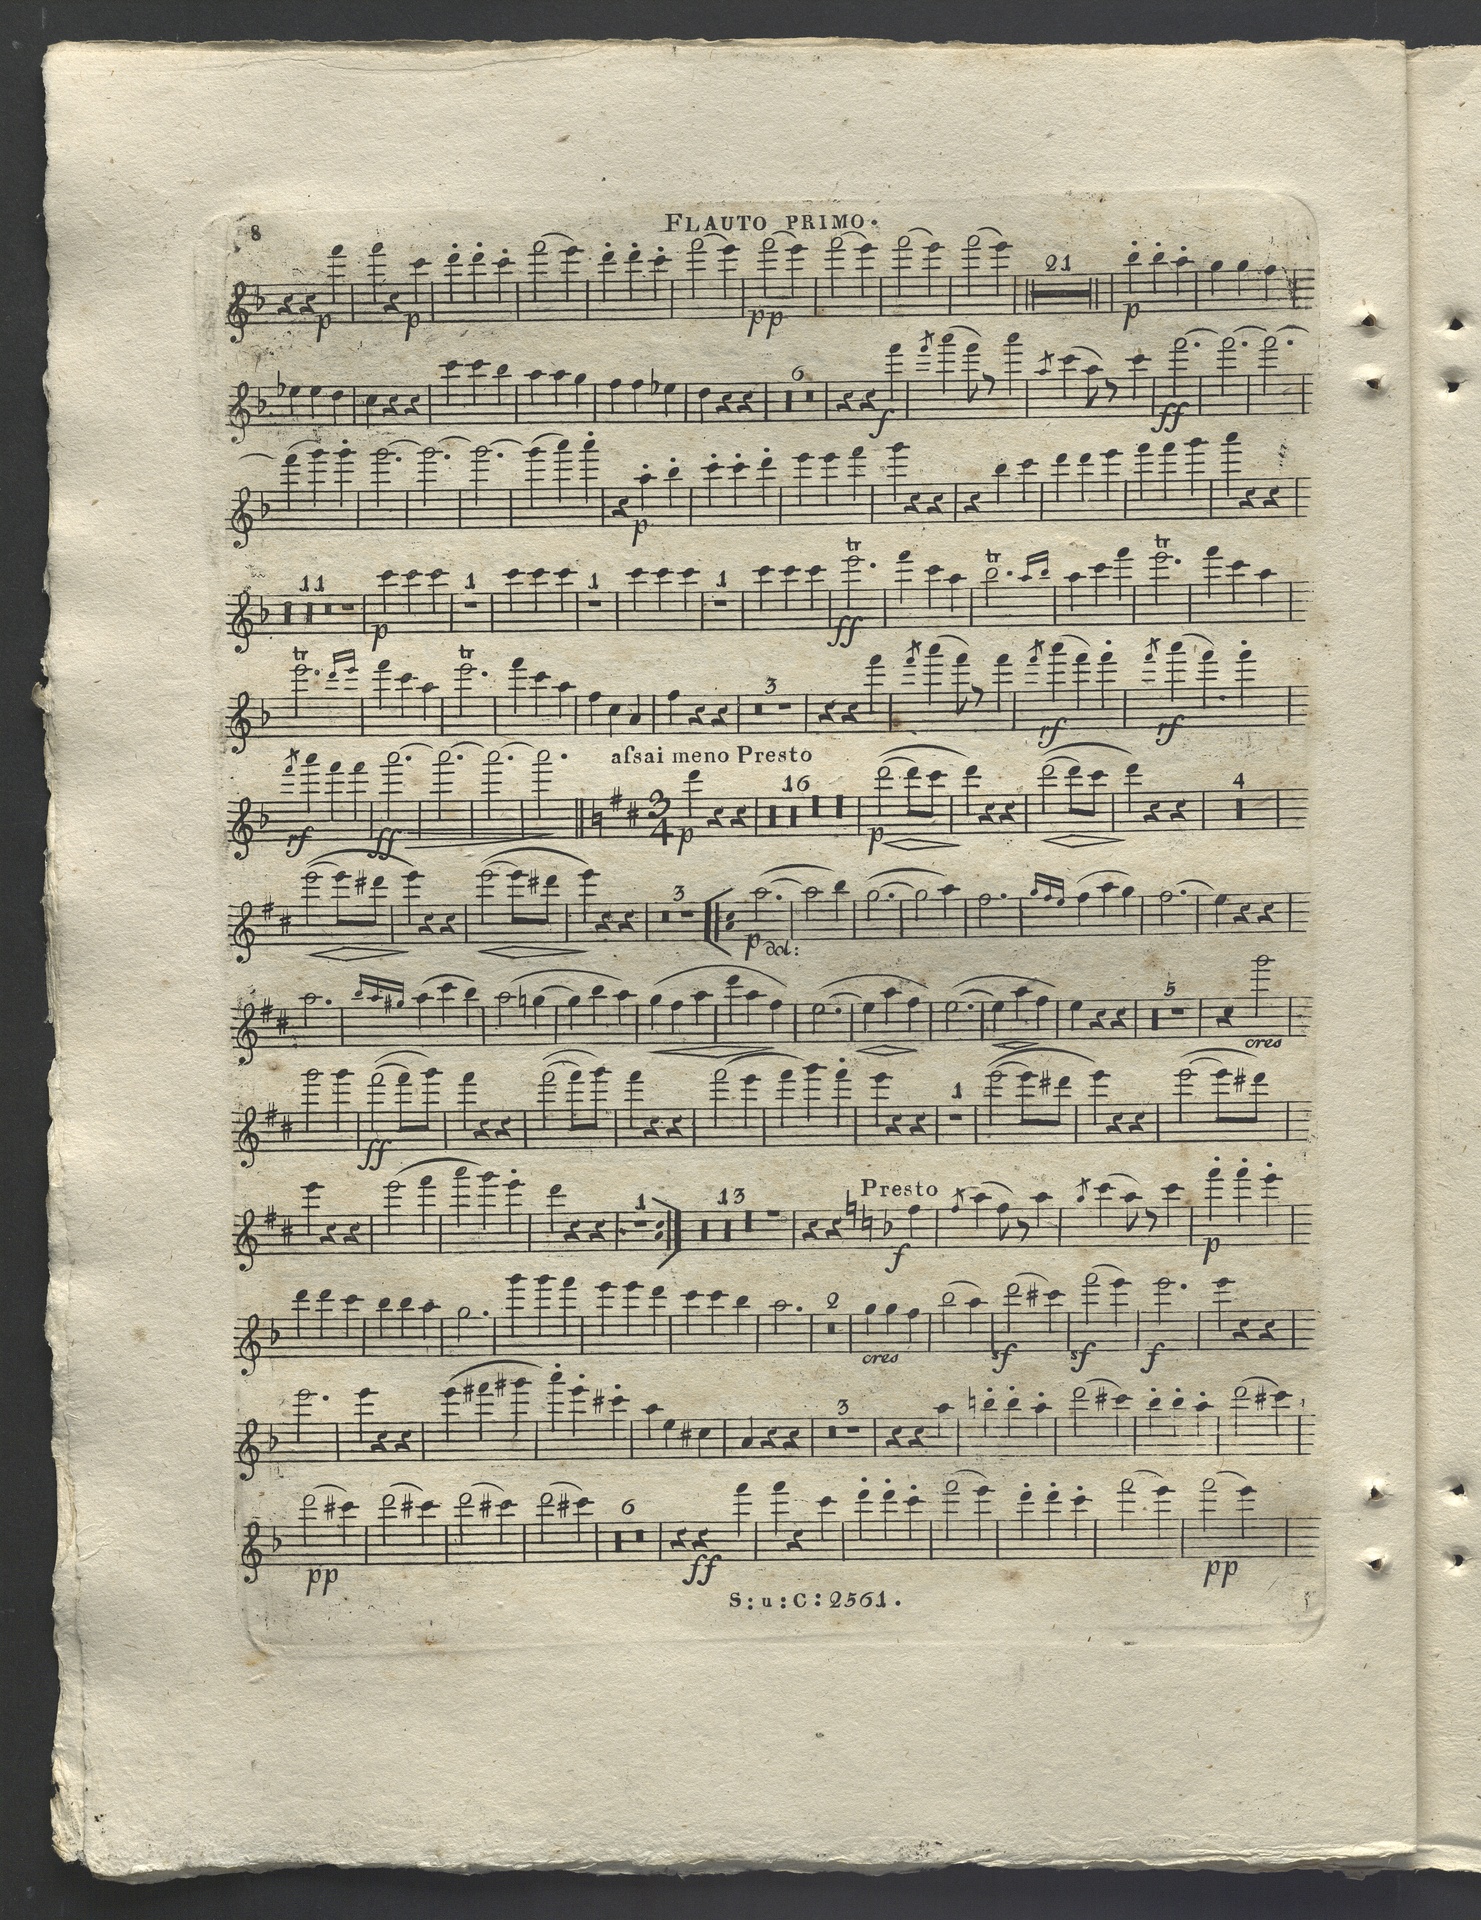 8
FLAUTO PRIMO.
21
p p pp p
6
f ff
p
11 1 1 1
tr tr tr
p ff
tr tr
3
rf rf
afsai meno Presto
16 4
3
4
rf ff p p
3
p dol:
5
cres
1
ff
1 13 Presto
f p
2
cres sf sf f
3
6
pp ff pp
S:u:C:2561.